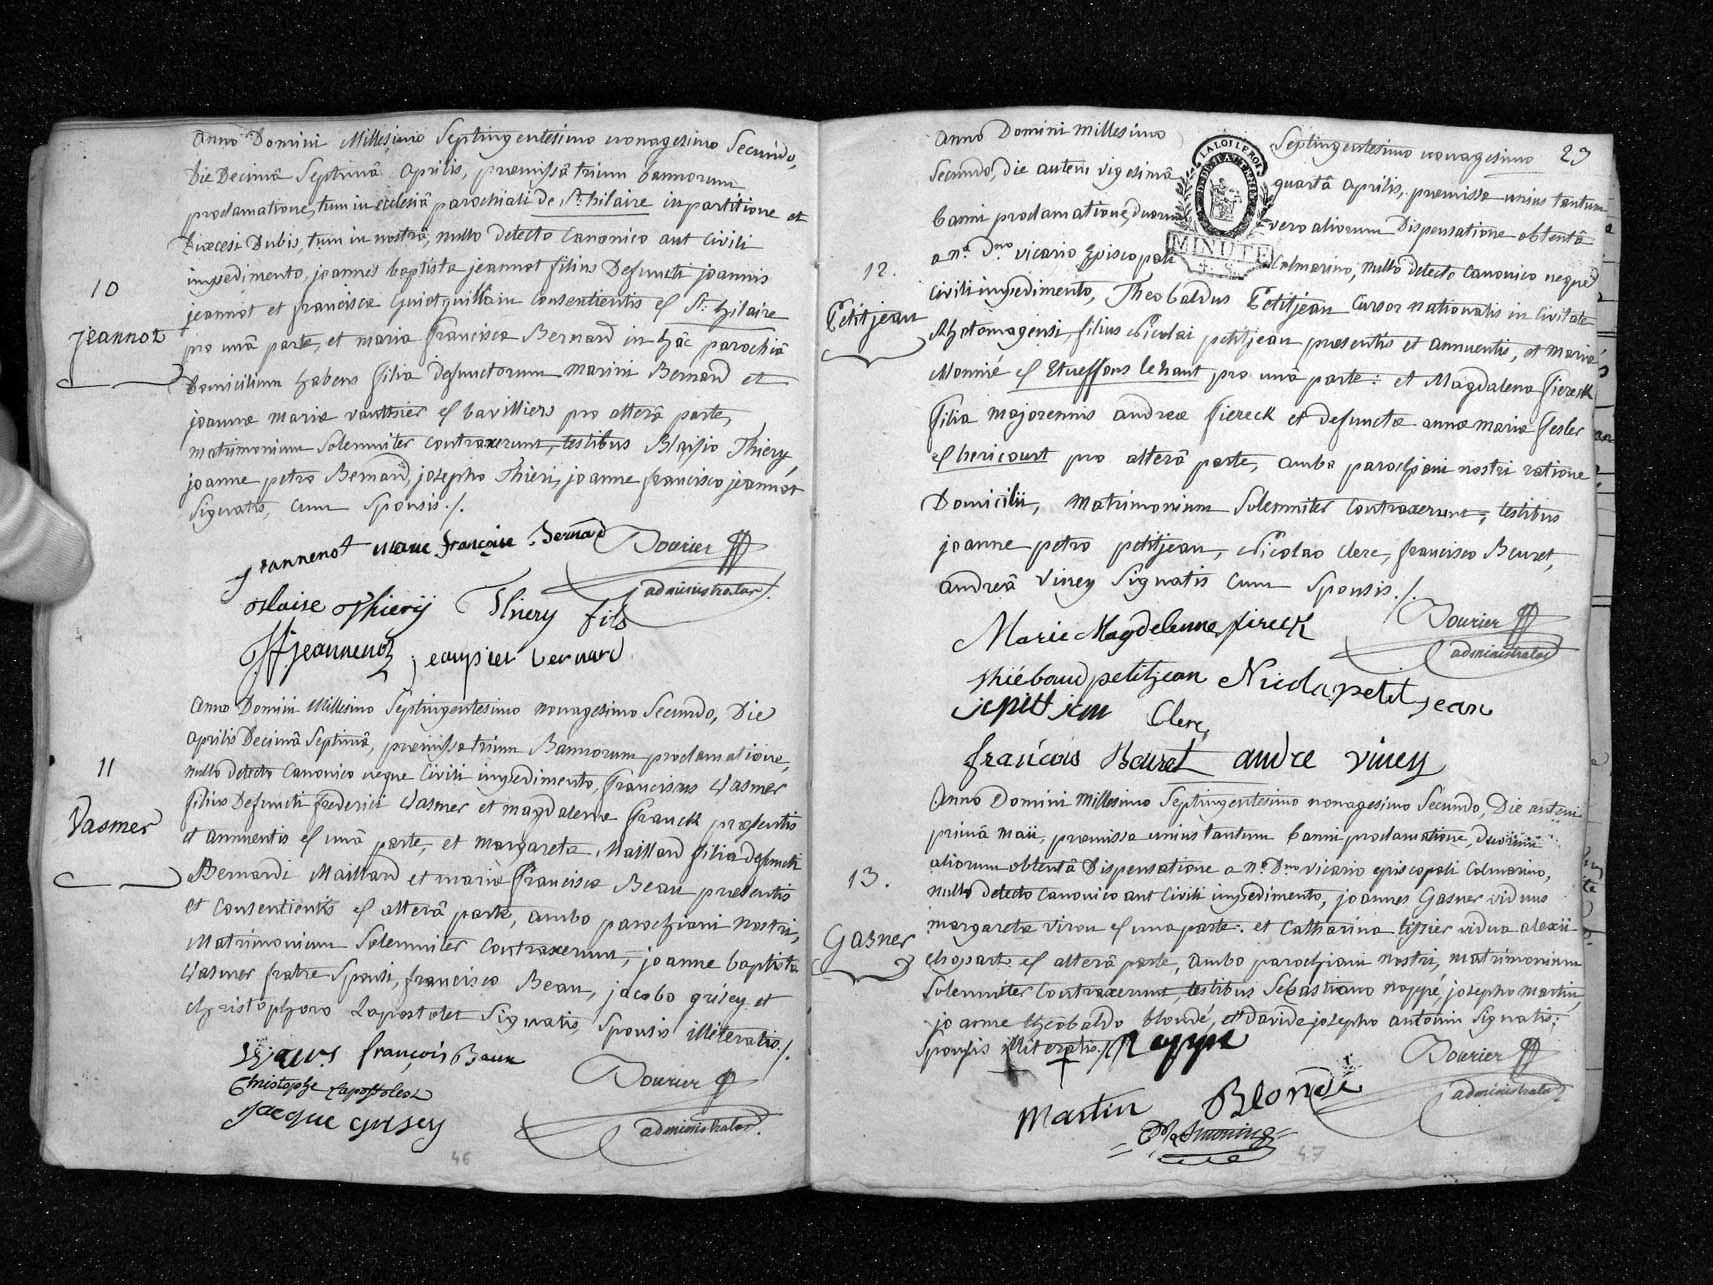 Anno Domini Millesimo Septingentesimo nonagesimo Secundo,
Die Decimâ Septimâ aprilis, præmissâ trium bannorum
proclamatione, tum in ecclesiâ parochiali de St. hilaire in partitione et
Diœcesi Dubis, tum in nostrâ, nullo detecto Canonico aut Civili
10
impedimento, joannes baptista jeannot filius Defuncti joannis
jeannot et franciscæ Guiotguillain consentientis est St. hilaire
jeannot
pro unâ parte, et maria francisca Bernard in hâc parochiâ
Domicilium habens filia defunctorum marini Bernard et
joannæ mariæ vauthier est bavilliers pro alterâ parte,
matrimonium Solemniter contraxerunt, testibus Blaisio Thiery,
joanne petro Bernard, josepho Thieri, joanne francisco jeannot
Signatis, cum Sponsis ./.
jeannenot marie françoise Bernard Dourier
administrator.
blaise Thierij Thiery fils
jfjeannenot jeanpier bernard
anno Domini Millesimo Septingentesimo nonagesimo Secundo, Die
aprilis Decimâ Septimâ, præmissa trium Bannorum proclamatione,
11
nullo detecto Canonico neque Civili impedimento, franciscus Vasmer
filius Defuncti frederici Vasmer et magdalenæ franck præsentis
Vasmer
et annuentis est unâ parte, et margareta Maillard filia defuncti
Bernardi Maillard et mariæ franciscæ Beau præsentis
et consentientis est alterâ parte, ambo parochiani nostri,
Matrimonium Solemniter contraxerunt, joanne baptista
Vasmer fratre Sponsi, francisco Beau, jacobo grisey et
christophoro Lapostolet Signatis, Sponsis illiteratis ./.
françois Baux
Christophe Lapostolest Dourier
jacque grisey administrator.
46
Anno Domini millesimo Septingentesimo nonagesimo 23
LA LOI LE ROI
Secundo, die autem vigesimâ quartâ aprilis, præmissa unius tantum
banni proclamatione, duorum vero aliorum Dispensatione obtentâ
MINUTE
a no. Dno. vicario Episcopali Colmarino, nullo detecto canonico neque
12.
civili impedimento, Theobaldus Petitjean Cursor nationalis in Civitate
Petitjean
Rhotomagensi, filius Nicolai petitjean præsentis et annuentis, et mariæ
Monnié est Etueffons lehaut pro unâ parte: et Magdalena fiereck
filia majorennis andreæ fiereck et defunctæ annæ mariæ fesler
est hericourt pro alterâ parte, ambo parochiani nostri ratione
Domicilii, matrimonium Solemniter contraxerunt, testibus
joanne petro petitjean, Nicolao clerc, francisco Bouret,
andreâ Viney Signatis cum Sponsis ./.
Marie Magdelenne fireck Dourier
administrator
thiébaud petitjean Nicola petit jean
jppetitjean Clerc
francois Bouret andre viney
Anno Domini Millesimo Septingentesimo nonagesimo Secundo, Die autem
primâ maii, præmissa unius tantum banni proclamatione, duorum
aliorum obtentâ Dispensatione a no. Dno. vicario episcopali Colmarino,
13.
nullo detecto canonico aut Civili impedimento, joannes Gasner viduus
margaretæ viron est una parte. et Catharina tissier vidua alexii
Gasner
chopart est alterâ parte, ambo parochiani nostri, matrimonium
Solemniter contraxerunt, testibus Sebastiano noppé, josepho martin,
joanne theobaldo blondé, et Davide josepho antonin Signatis;
Sponsis illiteratis ./. Noppe
Dourier
Martin Blondé administrator
47